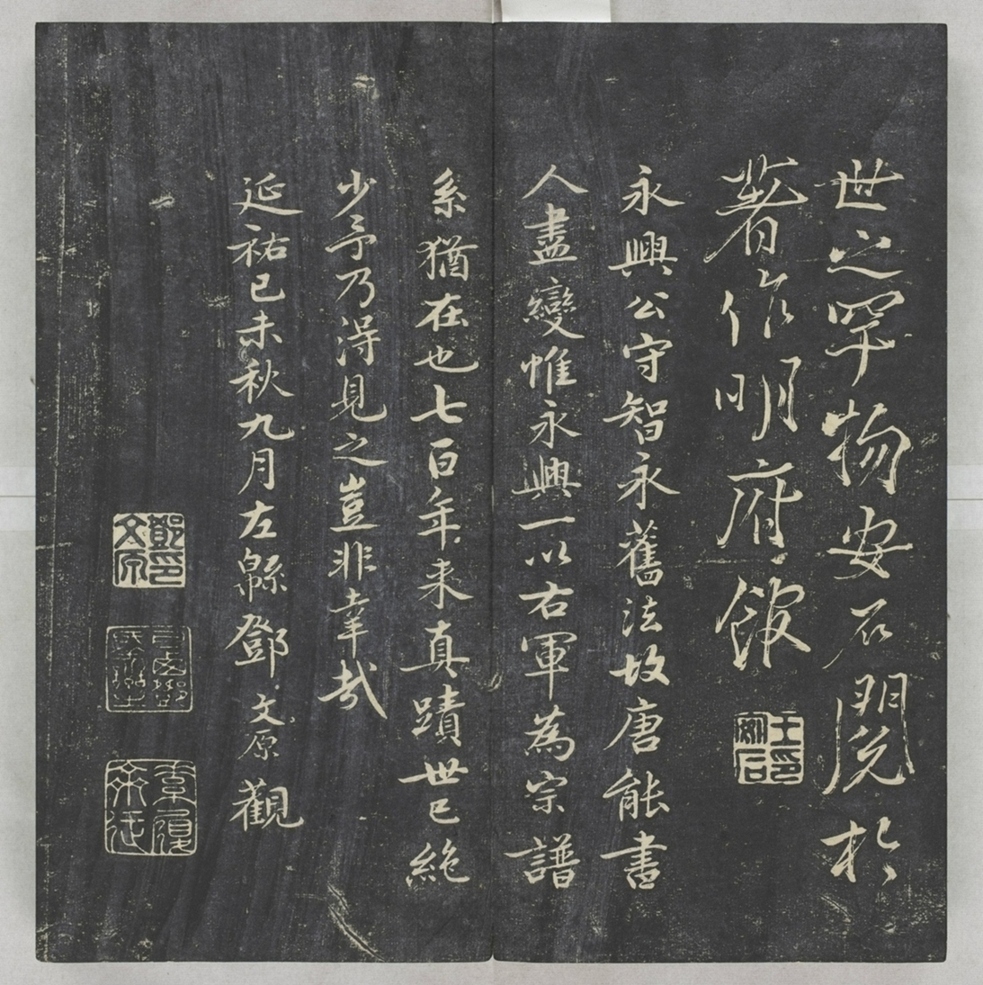 世之罕物安石閱於
著作明府館
王印安石
永興公守智永舊法故唐能書
人盡變惟永興一以右軍為宗譜
系猶在也七百年来真蹟世已絶
少予乃淂見之豈非幸㢤
延祐己未秋九月左緜鄧文原觀
鄧印文原
素履齋